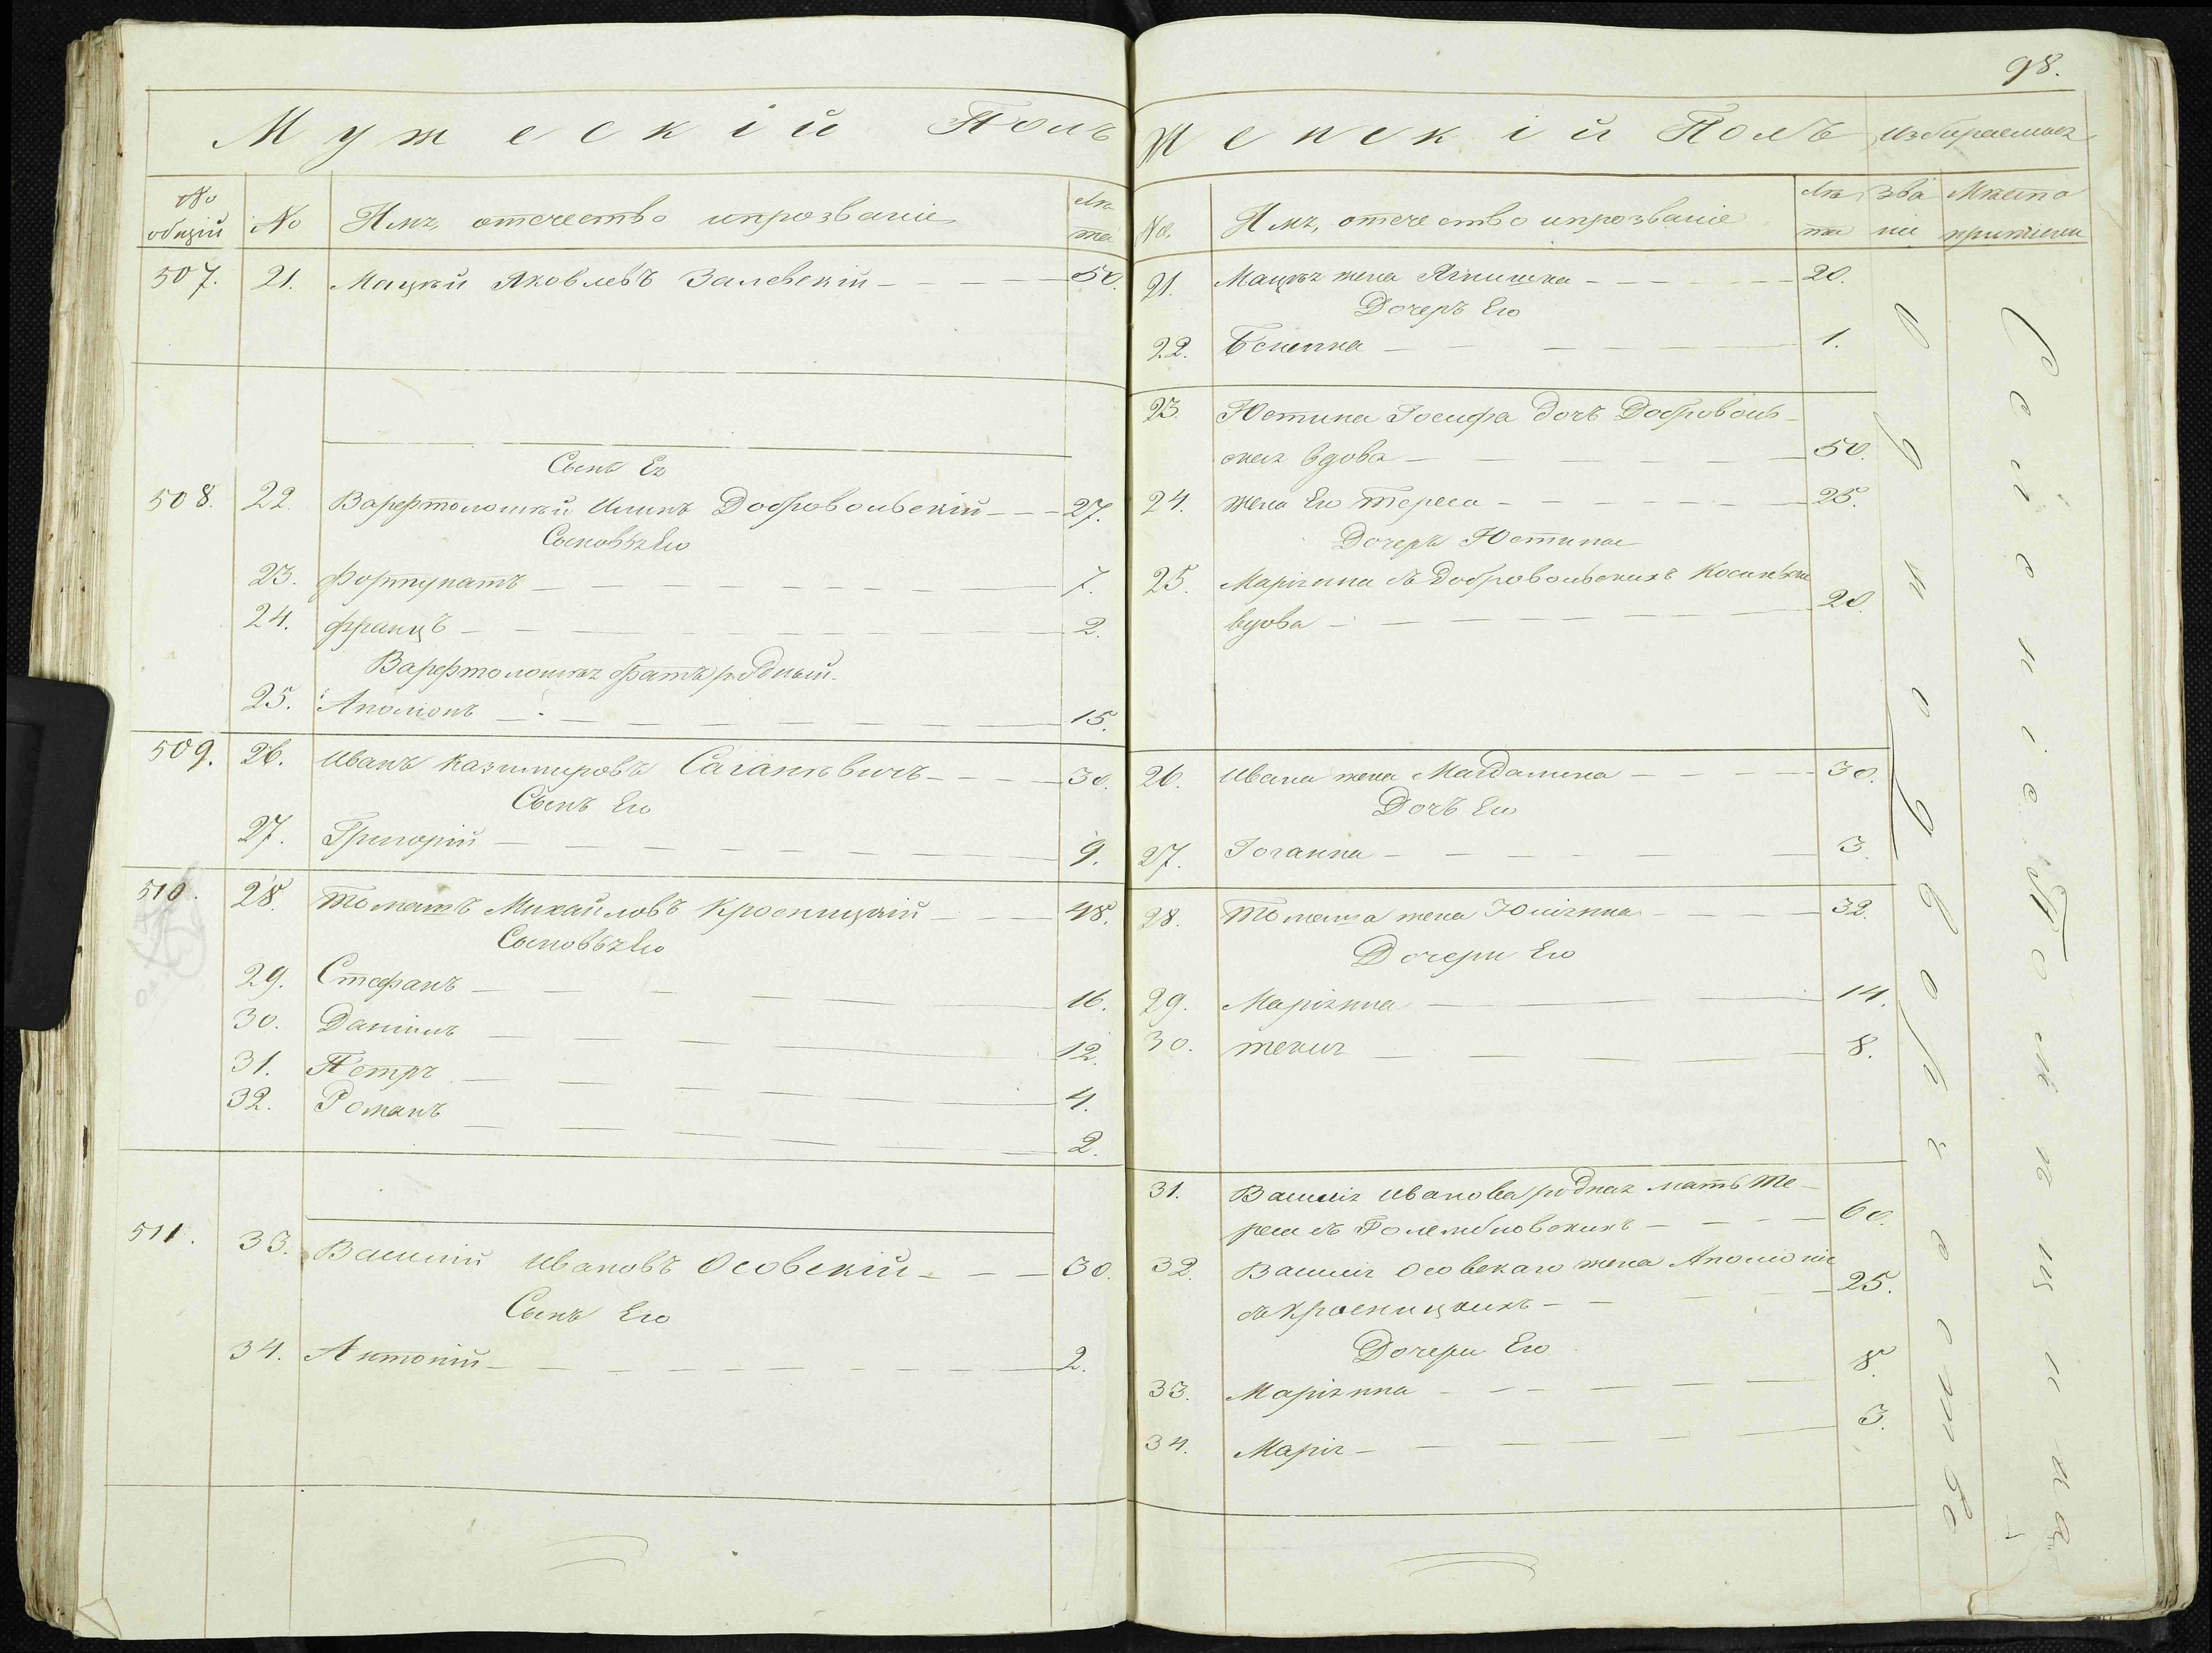 98.
Мужескій Полъ
№ общій
№
Имя, отечество и прозваніе
Лѣта
507. 21. Мацѣй Яковлевъ Залевскій 50.
Сынъ Ея
508. 22. Варфтоломѣй Илинъ Добровольскій 27.
Сыновья Его
23. Фортунатъ 7.
24. Францъ 2.
Варфтоломѣя братъ родный
25. Аполіонъ 15.
509. 26. Иванъ Казимировъ Саганѣвичъ 30.
Сынъ Его
27. Григорій 9.
510. 28. Томашъ Михайловъ Кросницкій 48.
Сыновья Его
29. Стефанъ 16.
30. Даніилъ 12.
31. Петръ 4.
32. Романъ 2.
511. 33. Василій Ивановъ Осовскій 30.
Сынъ Его
34. Антоній 2.
Женскій Полъ
Избираемыя
№
Имя, отечество и прозваніе
Лѣта
Званіе
Мѣсто
21. Мацѣя жена Ягнишка 20.
Дочеръ Его
22. 1.
23. Юстина Іосифа дочъ Доброволь-
ская вдова 50.
24. Жена Его Тереса 25.
Дочеръ Юстины
25. Маріянна съ Добровольскихъ
вдова 20.
26. Ивана жена Магдалина 30.
Дочъ Его
27. Іоганна 3.
28. Томаша жена Юліянна 32.
Дочери Его
29. Маріянна 14.
30. Текля 8.
31. Василія Иванова родная мать Те-
реса съ Голембіовскихъ 60.
32. Василія Осовскаго жена Аполонія
съ Кросницкихъ 25.
Дочери Его
33. Маріянна 8.
34. Марія 3.
Однодворческое
Селеніе